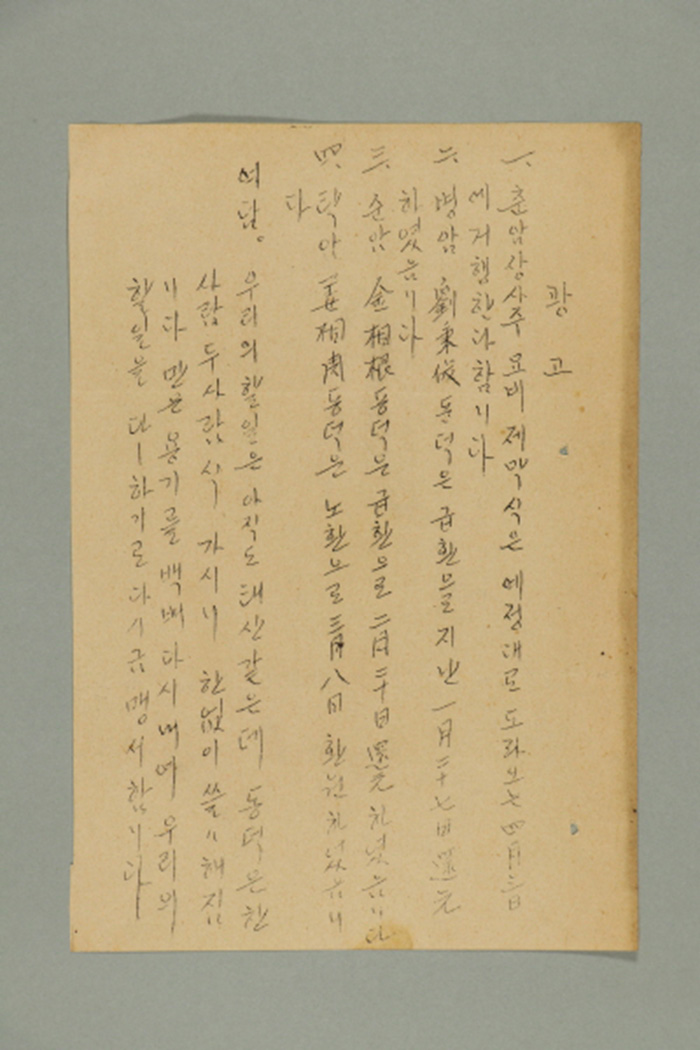 광고
一、춘암상사주 묘비 제막식은 예정대로 도라오는 四月三日
에 거행한다 함니다
二、명암 劉秉俊 동덕은 급환으로 지난 一月二十七日 還元
하였슴니다
三、순암 金相根 동덕은 급환으로 二月二十日 還元 하녔슴니다
四、탁아 姜相 동덕은 노환으로 三月八日 환원하녔슴니
다
여담。 우리의 할 일은 아직도 태산같은데 동덕은 한
사람 두사람 식 가시니 한없이 쓸〃해집
니다 만은 용기를 백배 다시 내여 우리의
할일을 다 하기로 다시금 맹서함니다